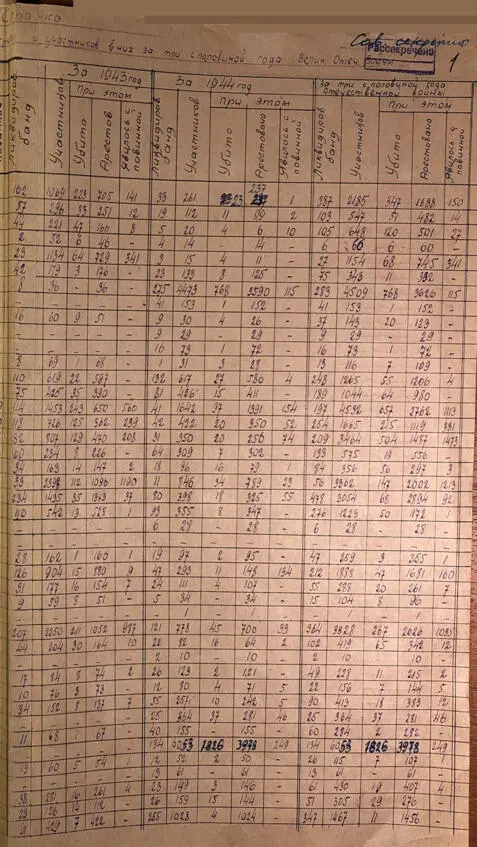 Сов. секретно
Рассекречено
1
и участников в них за три с половиной года Велик. Отеч. войны
За 1943 год За 1944 год За три с половиной года Отечественной войны
При этом При этом При этом
Ликвидиров банд Участников Убито Арестов Явилось с повинной Ликвидиров банд Участников Убито Арестовано Явилось с повинной Ликвидиров банд Участников Убито Арестовано Явилось с повинной
162 1069 223 705 141 33 261 23 237 1 387 2185 347 1688 150
57 296 33 251 12 19 112 11 99 2 103 547 51 482 14
44 221 47 166 8 5 20 4 6 10 105 648 120 501 27
2 52 6 46 - 4 14 - 14 - 6 66 6 60 -
23 1134 64 729 341 3 15 4 11 - 27 1154 68 745 341
42 179 3 176 - 23 133 8 125 - 75 343 11 332 -
8 36 - 36 - 275 4473 768 3590 115 283 4509 768 3626 115
- - - - - 41 153 1 152 - 41 153 1 152 -
16 60 9 51 - 9 30 4 26 - 37 143 20 123 -
- - - - - 9 29 - 29 - 9 29 - 29 -
- - - - - 16 73 1 72 - 16 73 1 72 -
8 69 1 68 - 1 31 3 28 - 13 116 7 109 -
110 619 22 597 - 132 617 27 586 4 248 1265 55 1206 4
75 425 35 390 - 31 426 15 411 - 189 1044 64 980 -
114 1453 243 650 560 41 1642 97 1391 154 197 4532 657 2762 1113
118 726 125 362 239 42 422 20 350 52 254 1665 215 1119 331
32 807 129 470 208 31 350 20 256 74 209 3464 504 1487 1473
60 234 8 226 - 64 309 7 302 - 133 575 19 556 -
34 163 14 147 2 18 96 16 79 1 84 356 56 297 3
33 2398 112 1096 1190 11 846 34 789 23 56 3362 147 2002 1213
234 1435 35 1363 37 80 398 18 325 55 478 3054 68 2894 92
110 542 13 528 1 93 355 8 347 - 276 1223 50 1172 1
- - - - - 6 28 - 28 - 6 28 - 28 -
28 162 1 160 1 19 97 2 95 - 47 259 3 255 1
126 904 15 880 9 47 293 11 148 134 212 1888 47 1681 160
31 177 16 154 7 24 111 4 107 - 55 288 20 261 7
9 59 8 51 - 5 34 - 34 - 15 104 8 96 -
- - - - - - 1 - 1 - - 1 - 1 -
207 2250 211 1052 987 121 778 45 700 33 364 3328 267 2026 1035
44 204 30 164 10 22 82 16 64 2 102 419 65 342 12
- - - - - 2 10 - 10 - 2 10 - 10 -
17 84 8 74 2 26 123 2 121 - 49 228 11 215 2
10 76 3 73 - 12 80 4 71 5 22 156 7 144 5
34 152 8 137 7 55 257 10 242 5 90 413 18 383 12
- - - - - 25 364 37 281 46 25 364 37 281 46
11 68 1 67 - 40 155 - 155 - 60 284 2 282 -
- - - - - 134 6053 1826 3978 249 134 6053 1826 3978 249
13 60 5 54 1 12 52 2 50 - 26 115 7 107
- - - - - 13 61 - 61 - 13 61 - 61 -
38 281 16 261 4 23 149 3 146 - 61 430 19 407 4
23 126 14 112 - 26 159 15 144 - 51 305 29 276 -
91 429 7 422 - 255 1028 4 1024 - 347 1467 11 1456 -